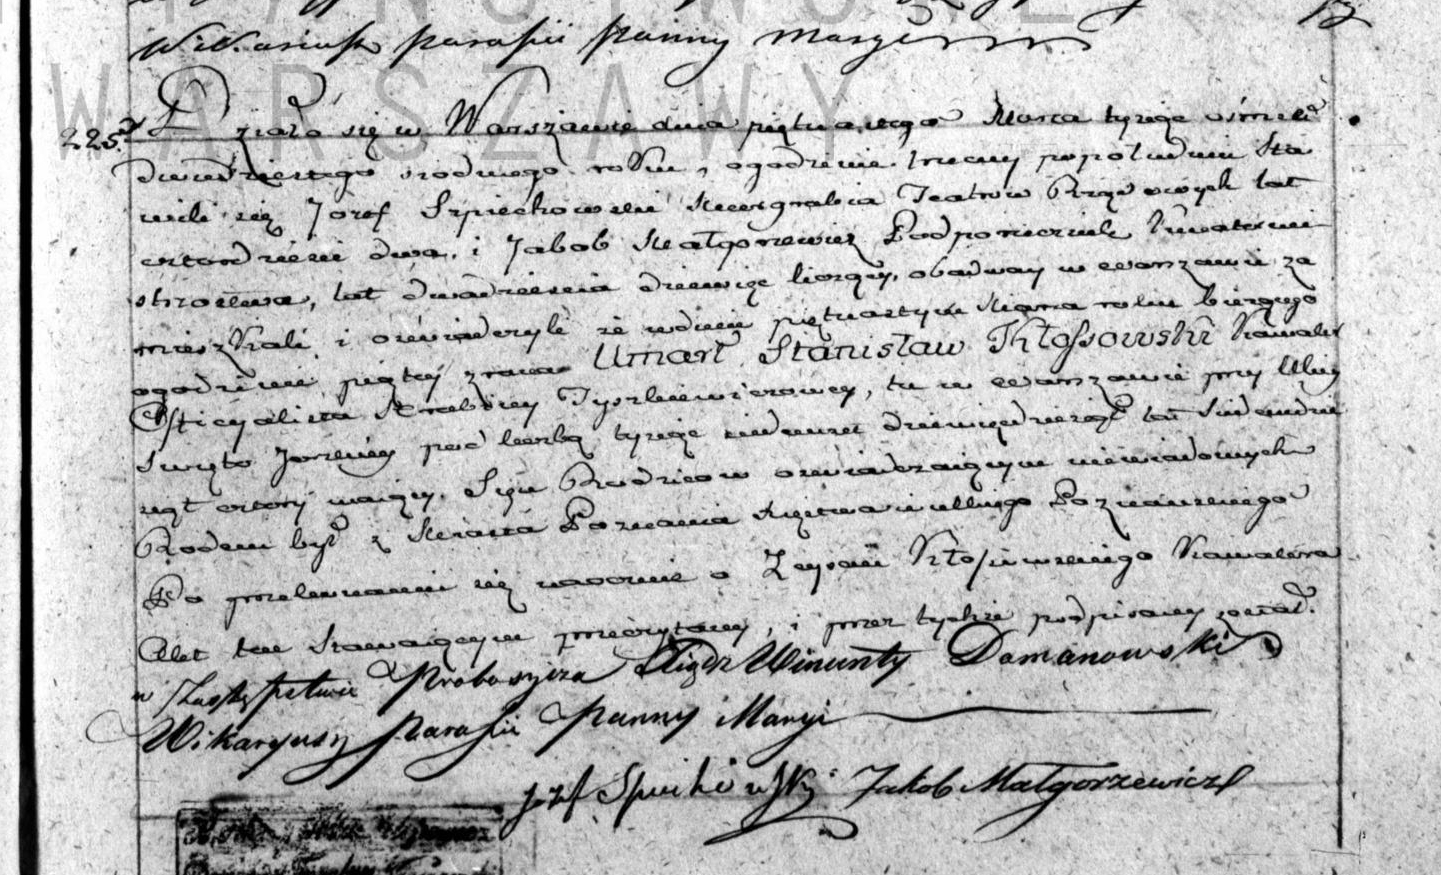 Wikariusz Parafii Panny Maryi
WARSZAWY
225. Działo się w Warszawie dnia piętnastego Marca tysiąc ośmset
dwudziestego siodmego roku, o godzinie trzeciey po południu Sta
wili się Jozef Szpiechowski Rządowych lat
czterdzieści dwa, i Jakob Małgorzewicz Podporucznik
lat dwadzieścia dziewięć liczący, obadway w Warszawie za
mieszkali i oświadczyli że w dniu piętnastym Marca roku bieżącego
o godzinie piątey z rana Umarł Stanisław Kłossowski Kawaler
Officyalista Hrabiny Tyszkiewiczowey, tu w Warszawie przy Ulicy
Święto Jerskiey pod liczbą tysiąc siedmset dziewięćdziesiąt lat Siedmdzie
siąt cztery maiący. Syn Rodzicow oświadczaiącym niewiadomych
Rodem był z Miasta Poznania Xięstwa wielkiego Poznanskiego
Po przekonaniu się naocznie o Zeyściu Kłossowskiego Kawalera
Akt ten Stawaiącym przeczytany, i przez tychże podpisany został.
w Zastępstwie Proboszcza Xiądz Wincenty Domanowski
Wikaryusz Parafii Panny Maryi
Jozef Jakob Małgorzewicz